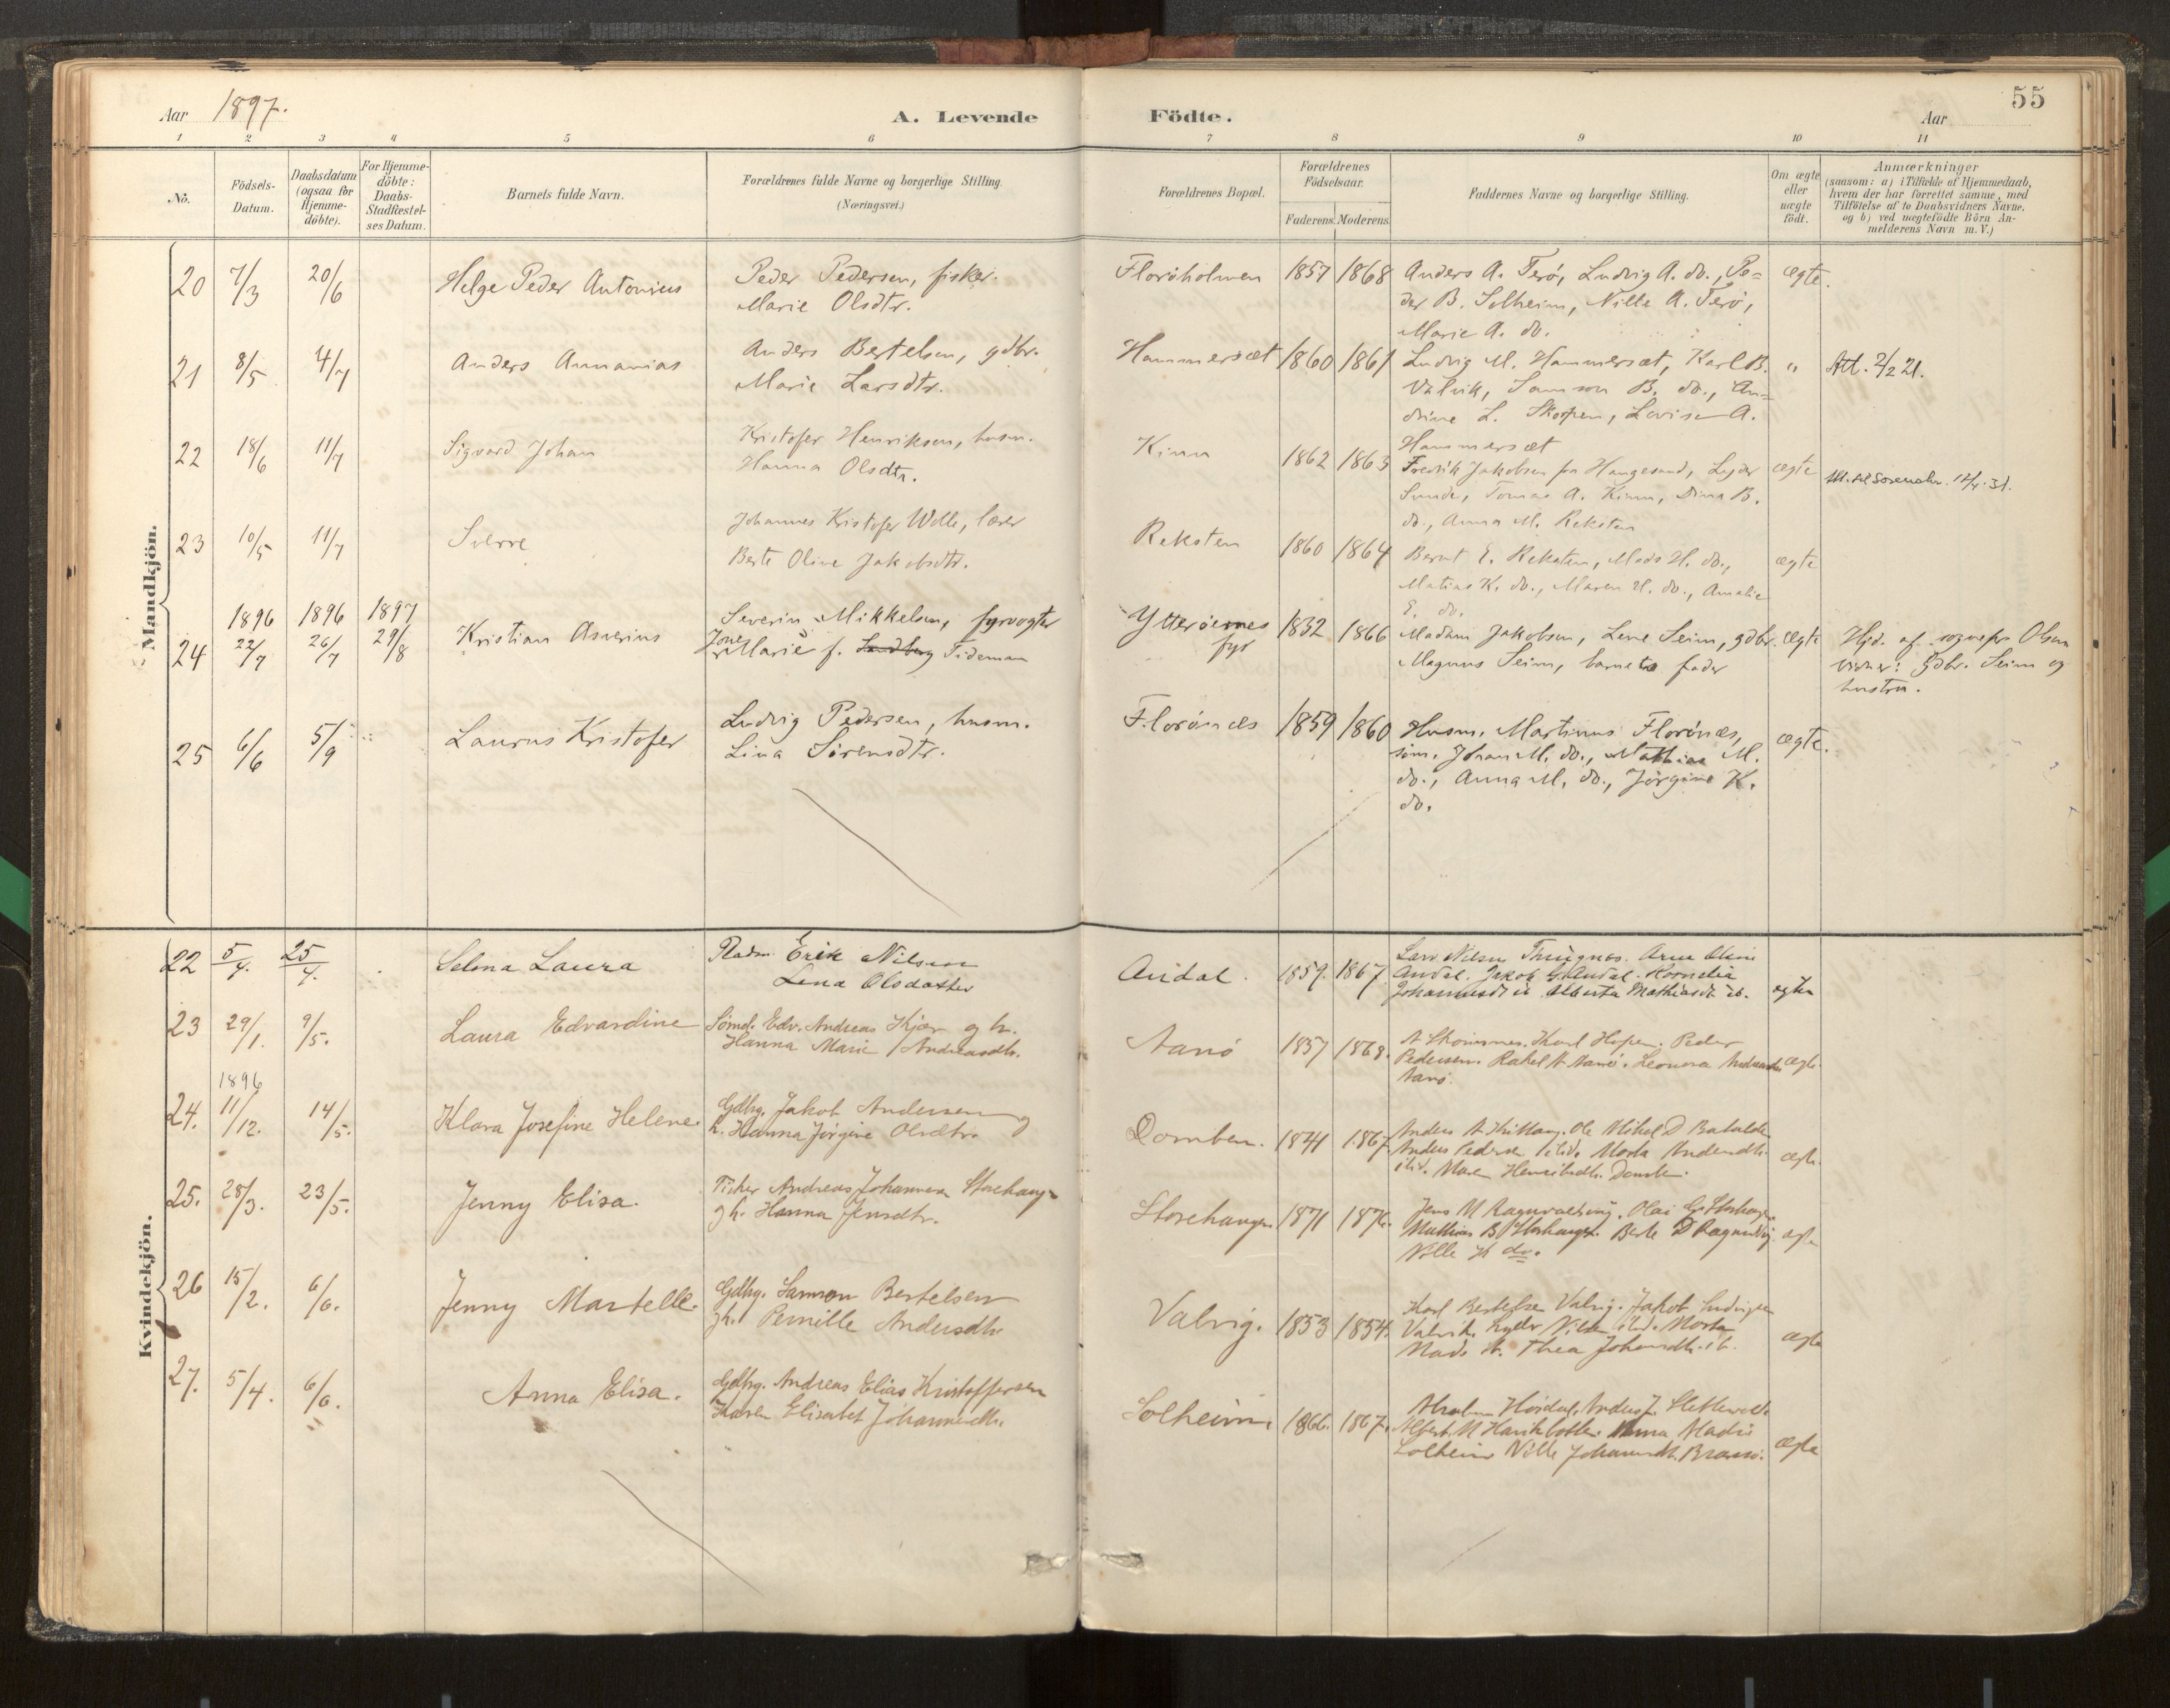 55
Aar 1897.
A. Levende Födte.
Aar
1 2 3 4 5 6 7 8 9 10 11
No.
Födsels-
Datum.
Daabsdatum
(ogsaa for
Hjemme-
döbte).
For Hjemme-
döbte:
Daabs-
Stadfæstel-
ses Datum.
Barnets fulde Navn.
Forældrenes fulde Navne og borgerlige Stilling.
(Næringsvei.)
Forældrenes Bopæl.
Forældrenes
Födselsaar.
Faderens. Moderens.
Faddernes Navne og borgerlige Stilling.
Om ægte
eller
uægte
födt.
Anmærkninger
(saasom: a) i Tilfælde af Hjemmedaab,
hvem der har forrettet samme, med
Tilföielse af to Daabsvidners Navne,
og b) ved uægtefödte Börn An-
melderens Navn m. V.)
Mandkjön.
20 7/3 20/6 Helge Peder Antonius
Peder Pedersen, fisker.
Marie Olsdtr.
Florøholmen 1857 1868
Anders A. Terø, Ludvig A. do., Pe-
der B. Solheim, Nille A. Terø,
Marie A. do.
ægte.
21 8/5 4/7 Anders Annanias
Anders Bertelsen, gdbr.
Marie Larsdtr.
Hammersæt 1860 1861
Ludvig M. Hammersæt, Karl B.
Valvik, Samson B. do., An-
drine L. Skorpen, Lovise A.
Hammersæt
" Att. 2/2 21.
22 18/6 11/7 Sigvard Johan
Kristofer Henriksen, husm.
Hanna Olsdtr.
Kinn 1862 1863
Fredrik Jakobsen fra Haugesund, Lyder
Sunde, Tomas A. Kinn, Dina B.
do., Anna M. Reksten
ægte
23 10/5 11/7 Sverre
Johannes Kristofer Wolle, lærer
Berte Oline Jakobsdtr.
Reksten 1860 1864
Bernt E. Reksten, Mads H. do.,
Matias K. do., Maren H. do., Amalie
E. do.
ægte
24 1896 22/7 1896 26/7 1897 29/8 Kristian Asverius
Severin Mikkelsen, fyrvogter
Marie f. Sandberg Tideman
Ytterøernes
fyr
1832 1866
Madam Jakobsen, Lene Seim, gdbr.
Magnus Seim, barnets fader
ægte
Hjd. af sognepr Olsen
vidner: gdbr. Seim og
hustru.
25 6/6 5/9 Laurus Kristofer
Ludvig Pedersen, husm.
Lina Sørensdtr.
Florønæs 1859 1860
Husm. Martinus Florønæs,
søm. Johan M. do., Mathias M.
do., Anna M. do., Jørgine K.
do.
ægte.
Kvindekjön.
22 5/4. 25/4. Selma Laura
Pladsm. Erik Nilsen
Lena Olsdatter
Andal. 1859. 1867.
Lars Nilsen
Andal. Jakob Andal. Kornelia
Alberta Mathiasdt
ægte
23 29/1. 9/5. Laura Edvardine
Edv. Andreas Kjær og h.
Hanna Marie Andreasdtr.
Aarø 1857 1868.
Karl Hopen. Peder
Pedersen. Rakel A Aarø. Leonora
Aarø.
ægte.
24. 1896 11/12. 14/5. Klara Josefine Helene.
Gdbrg. Jakob Andersen og
h. Hanna Jørgine Olsdtr.
Domben. 1841 1867.
Ole Mikal D Batalden
Anders Pedersen
ægte.
25. 28/3. 23/5. Jenny Elisa.
Fisker Andreas Johannesen Storehaugen
og h. Hanna Jensdtr.
Storehaugen. 1871 1876.
Jens M
Mathias B Storhaugen. Berte D
Nille K do.
ægte
26 15/2. 6/6. Jenny Martelle.
Gdbrg. Samson Bertelsen
og h. Pernille Andersdtr.
Valvig. 1853 1854.
Karl Bertelsen Valvig. Jakob Ludvigsen
Valvik.
Thea Johansdtr.
ægte
27. 5/4. 6/6. Anna Elisa.
Gdbrg. Andreas Elias Kristoffersen
Karen Elisabet Johannesdtr.
Solheim. 1866. 1867.
Anna Madsd
Solheim Nille Johannesdt. Brandsø.
ægte